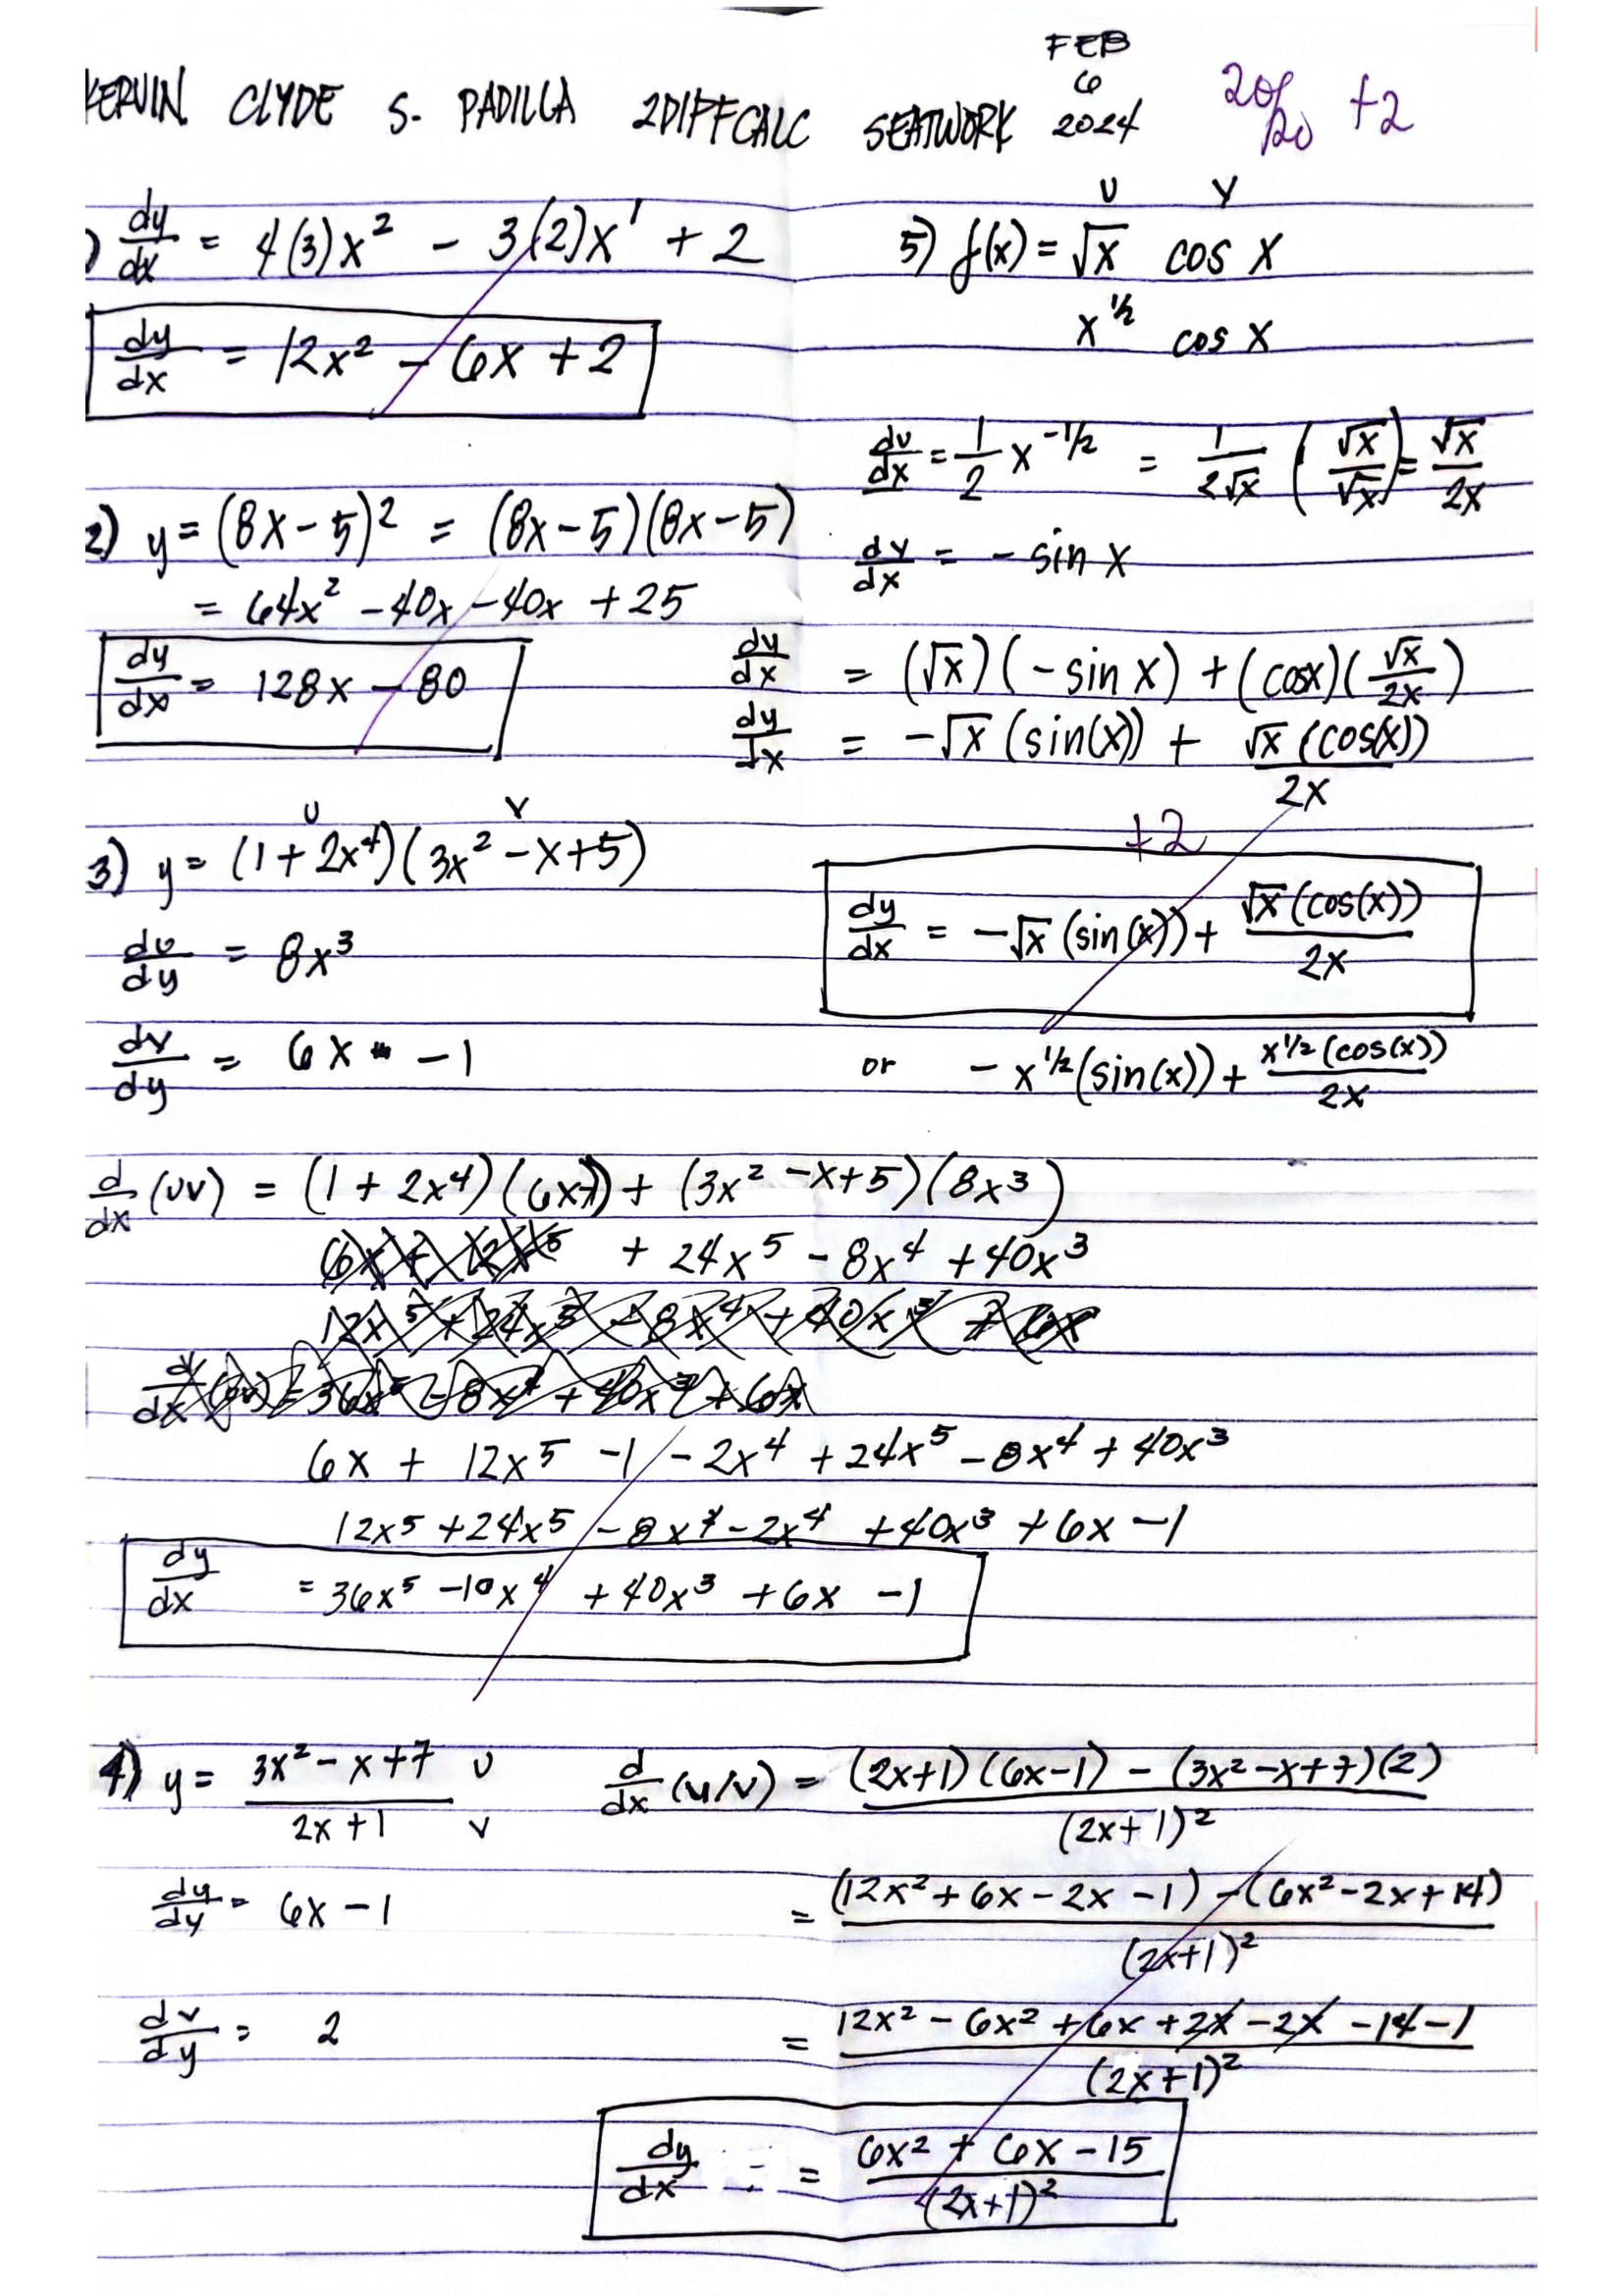 KERVIN CLYDE S. PADILLA 2DIFFCALC SEATWORK FEB 6 2024 20/20 +2
) dy/dx = 4(3)x² - 3(2)x¹ + 2
dy/dx = 12x² - 6x + 2
2) y = (8x-5)² = (8x-5)(8x-5)
= 64x² -40x -40x +25
dy/dx = 128x - 80
u v
3) y = (1+2x⁴)(3x² -x+5)
du/dy = 8x³
dv/dy = 6x - 1
d/dx (uv) = (1+2x⁴)(6x-1) + (3x² -x+5)(8x³)
+ 24x⁵ - 8x⁴ + 40x³
6x + 12x⁵ -1 - 2x⁴ + 24x⁵ - 8x⁴ + 40x³
12x⁵ + 24x⁵ - 8x⁴ - 2x⁴ + 40x³ + 6x - 1
dy/dx = 36x⁵ -10x⁴ + 40x³ + 6x - 1
4) y = 3x² - x + 7 u / 2x + 1 v
du/dy = 6x - 1
dv/dy = 2
d/dx (u/v) = (2x+1)(6x-1) - (3x²-x+7)(2) / (2x+1)²
= (12x² + 6x - 2x - 1) - (6x² - 2x + 14) / (2x+1)²
= 12x² - 6x² + 6x + 2x - 2x - 14 - 1 / (2x+1)²
dy/dx = 6x² + 6x - 15 / (2x+1)²
u v
5) f(x) = √x cos x
x^1/2 cos x
du/dx = 1/2 x^-1/2 = 1/2√x (√x/√x) = √x/2x
dv/dx = - sin x
dy/dx = (√x)(-sin x) + (cosx)(√x/2x)
dy/dx = -√x (sin(x)) + √x (cos(x)) / 2x
+2
dy/dx = -√x (sin(x)) + √x (cos(x)) / 2x
or - x^1/2 (sin(x)) + x^1/2 (cos(x)) / 2x